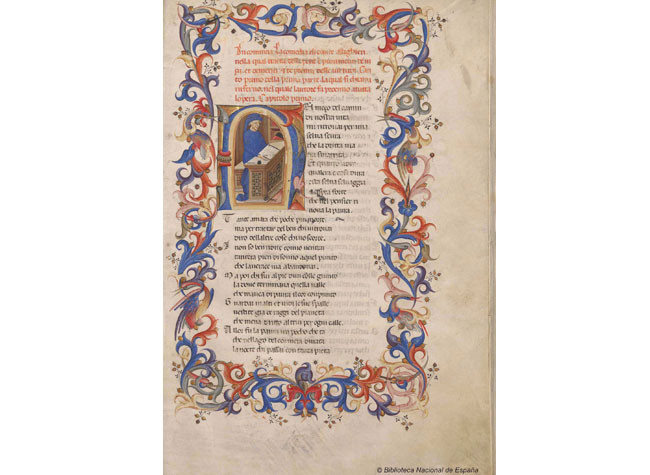 Incomincia la comedia di dante alleghieri
nella qual tracta delle pene et punimenti de
et demeriti et premii delle virtu. Can
to primo della prima parte la qual si chiama
inferno. nel quale lautore fa proemio a tutta
lopera. Capitolo primo.
Nel mezo del camin
di nostra vita
mi ritrovai per una
selva scura
che la dritta via
era smarrita
Et quanto
qual era e cosa dura
esta selva selvaggia
et forte
che nel pensier ri
nova la paura.
Tant amara che poco piu morte
ma per tractar del ben chi vi trovai
diro dellaltre cose chi
I non so ben come
tantera pien di sonno a quel punto
che la verace via abandonai.
Ma poi chi fui al pie dun colle giunto
la dove terminava quella valle
che mavea di paura il cor compunto
Guardai in alto et vidi le sue spalle
vestite gia de raggi del pianeta
che mena altrui per ogni calle.
Allor fu la paura un poco cheta
che nel lago del cor mera durata
la nocte chi passai con tanta pieta
© Biblioteca Nacional de España